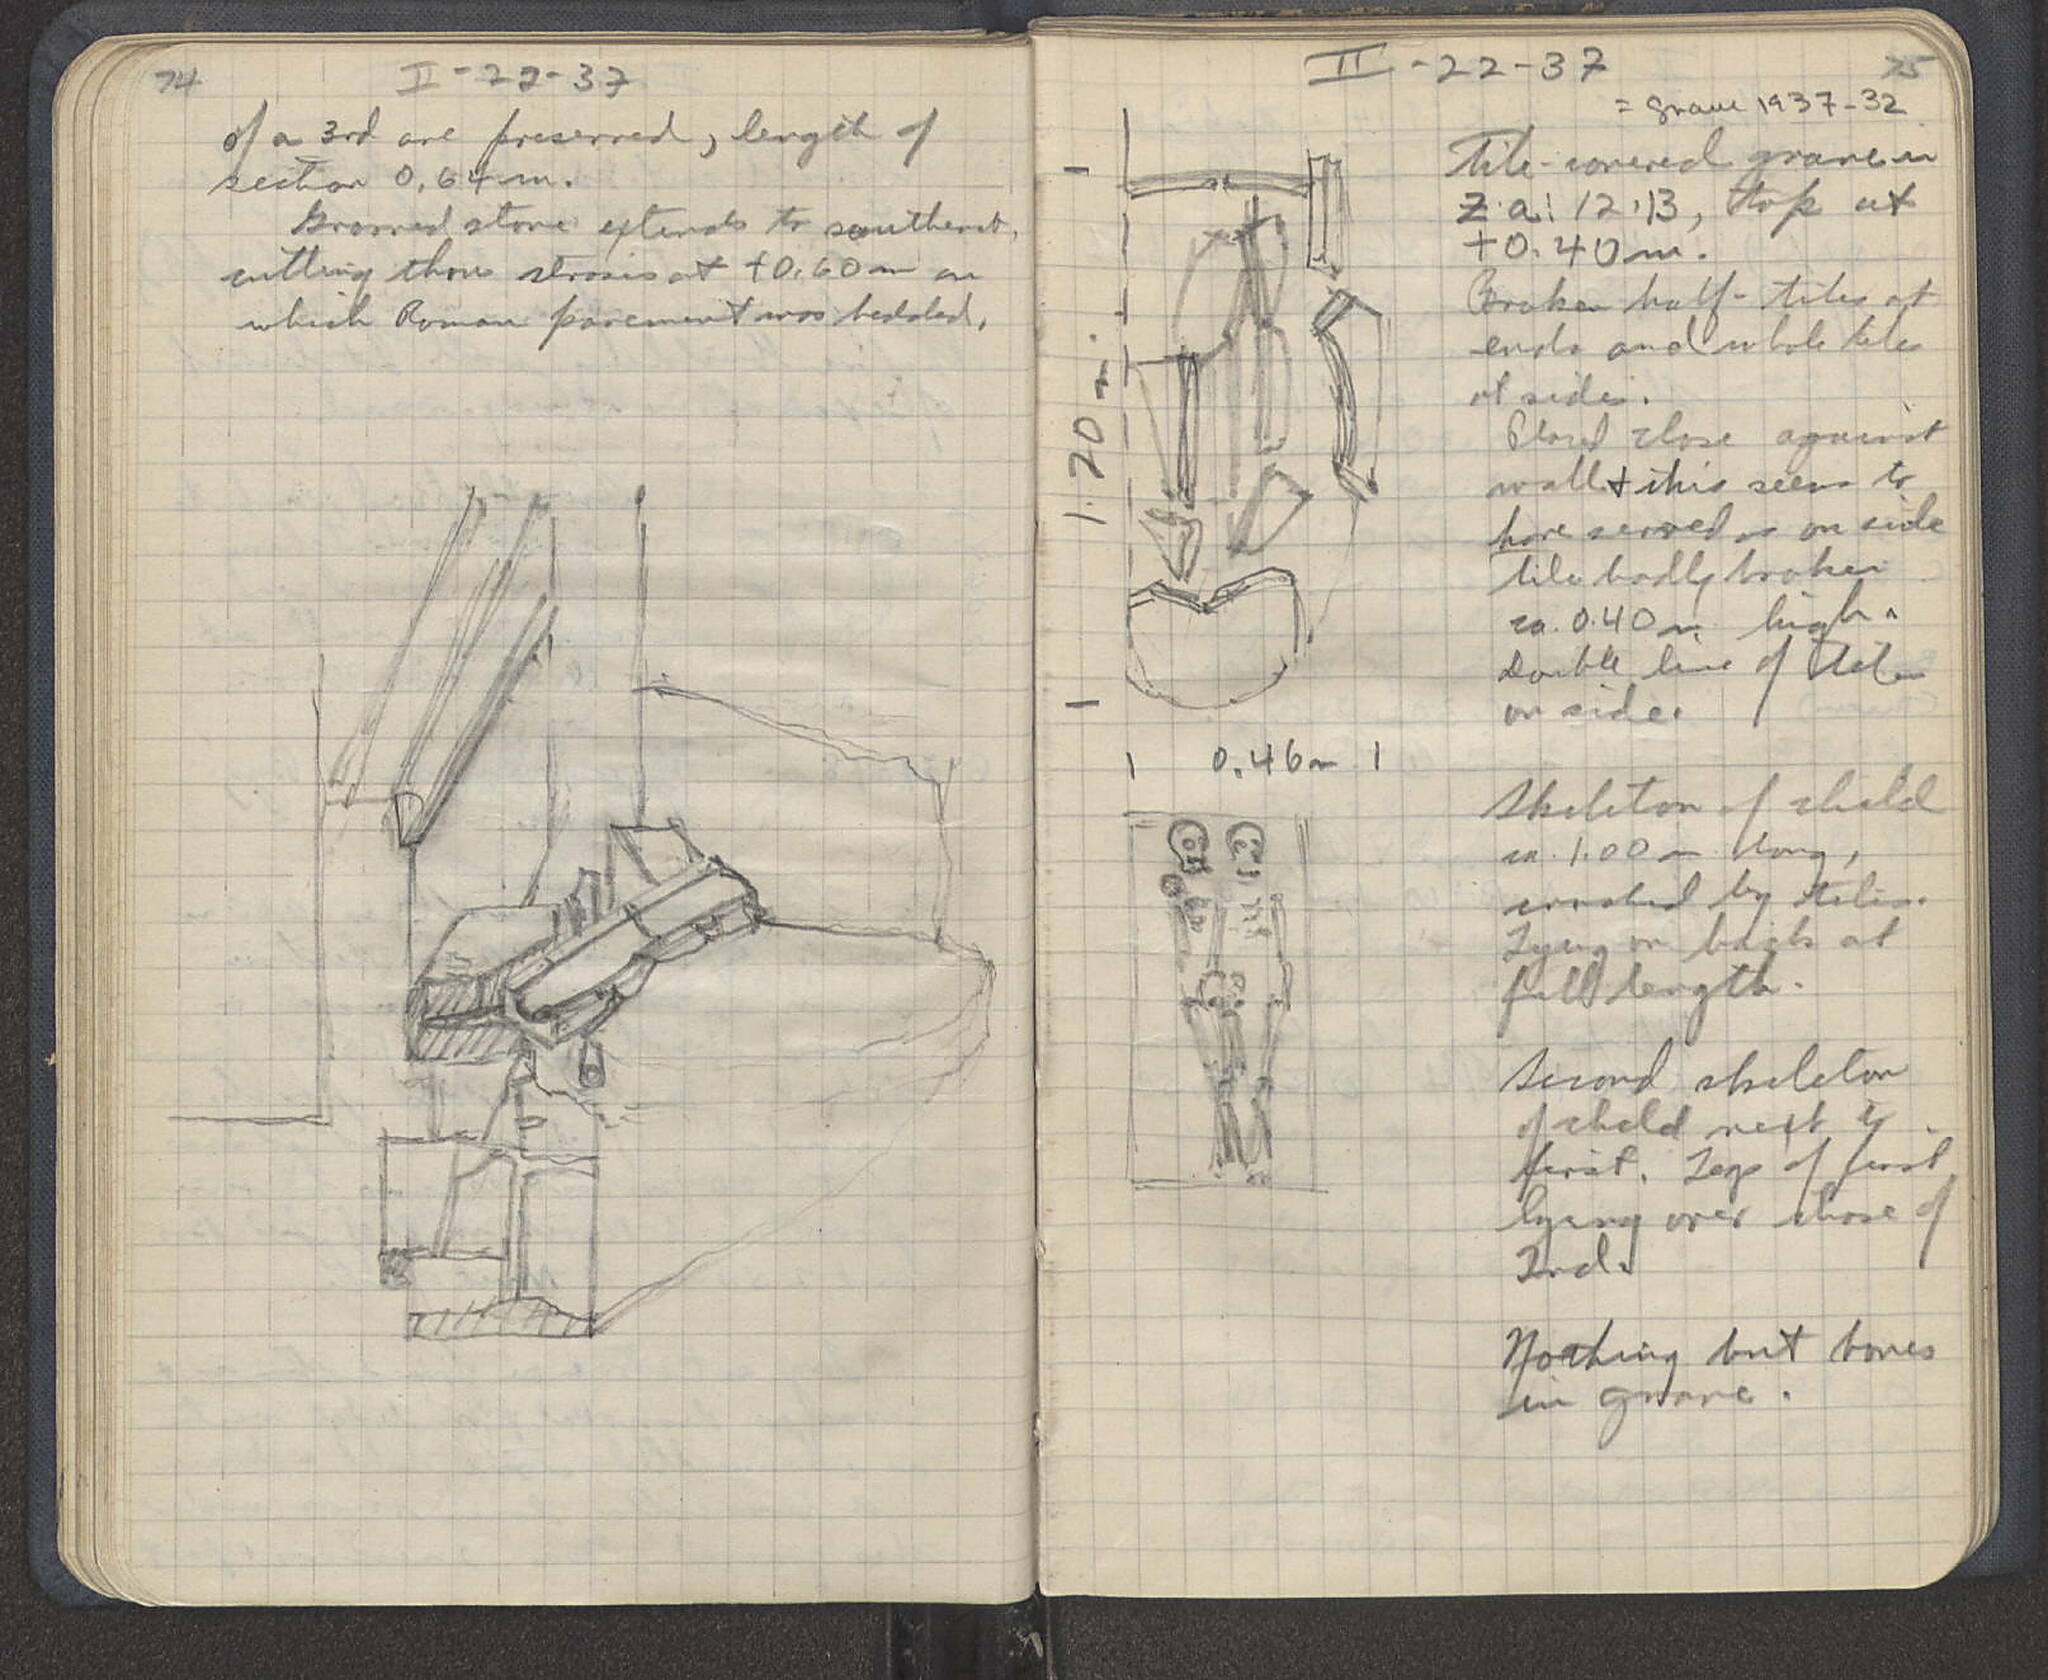 74
II-22-37
of a 3rd are preserved, length of
section 0.64 m.
Grooved stone extends to southeast,
cutting thru strosis at +0.60 m on
which Roman pavement was bedded.
75
II-22-37
= grave 1937-32
Tile-covered grave in
Z.a: 12:13, top at
+0.40 m.
Broken half-tiles at
ends and whole tiles
at sides.
Placed close against
wall & this seems to
have served as on side
tile badly broken
ca. 0.40 m. high.
Double line of tiles
on side.
1.20 m.
0.46 m
Skeleton of child
ca. 1.00 m. long,
crushed by tiles.
Lying on back at
full length.
Second skeleton
of child next to
first. Legs of first
lying over those of
2nd.
Nothing but bones
in grave.